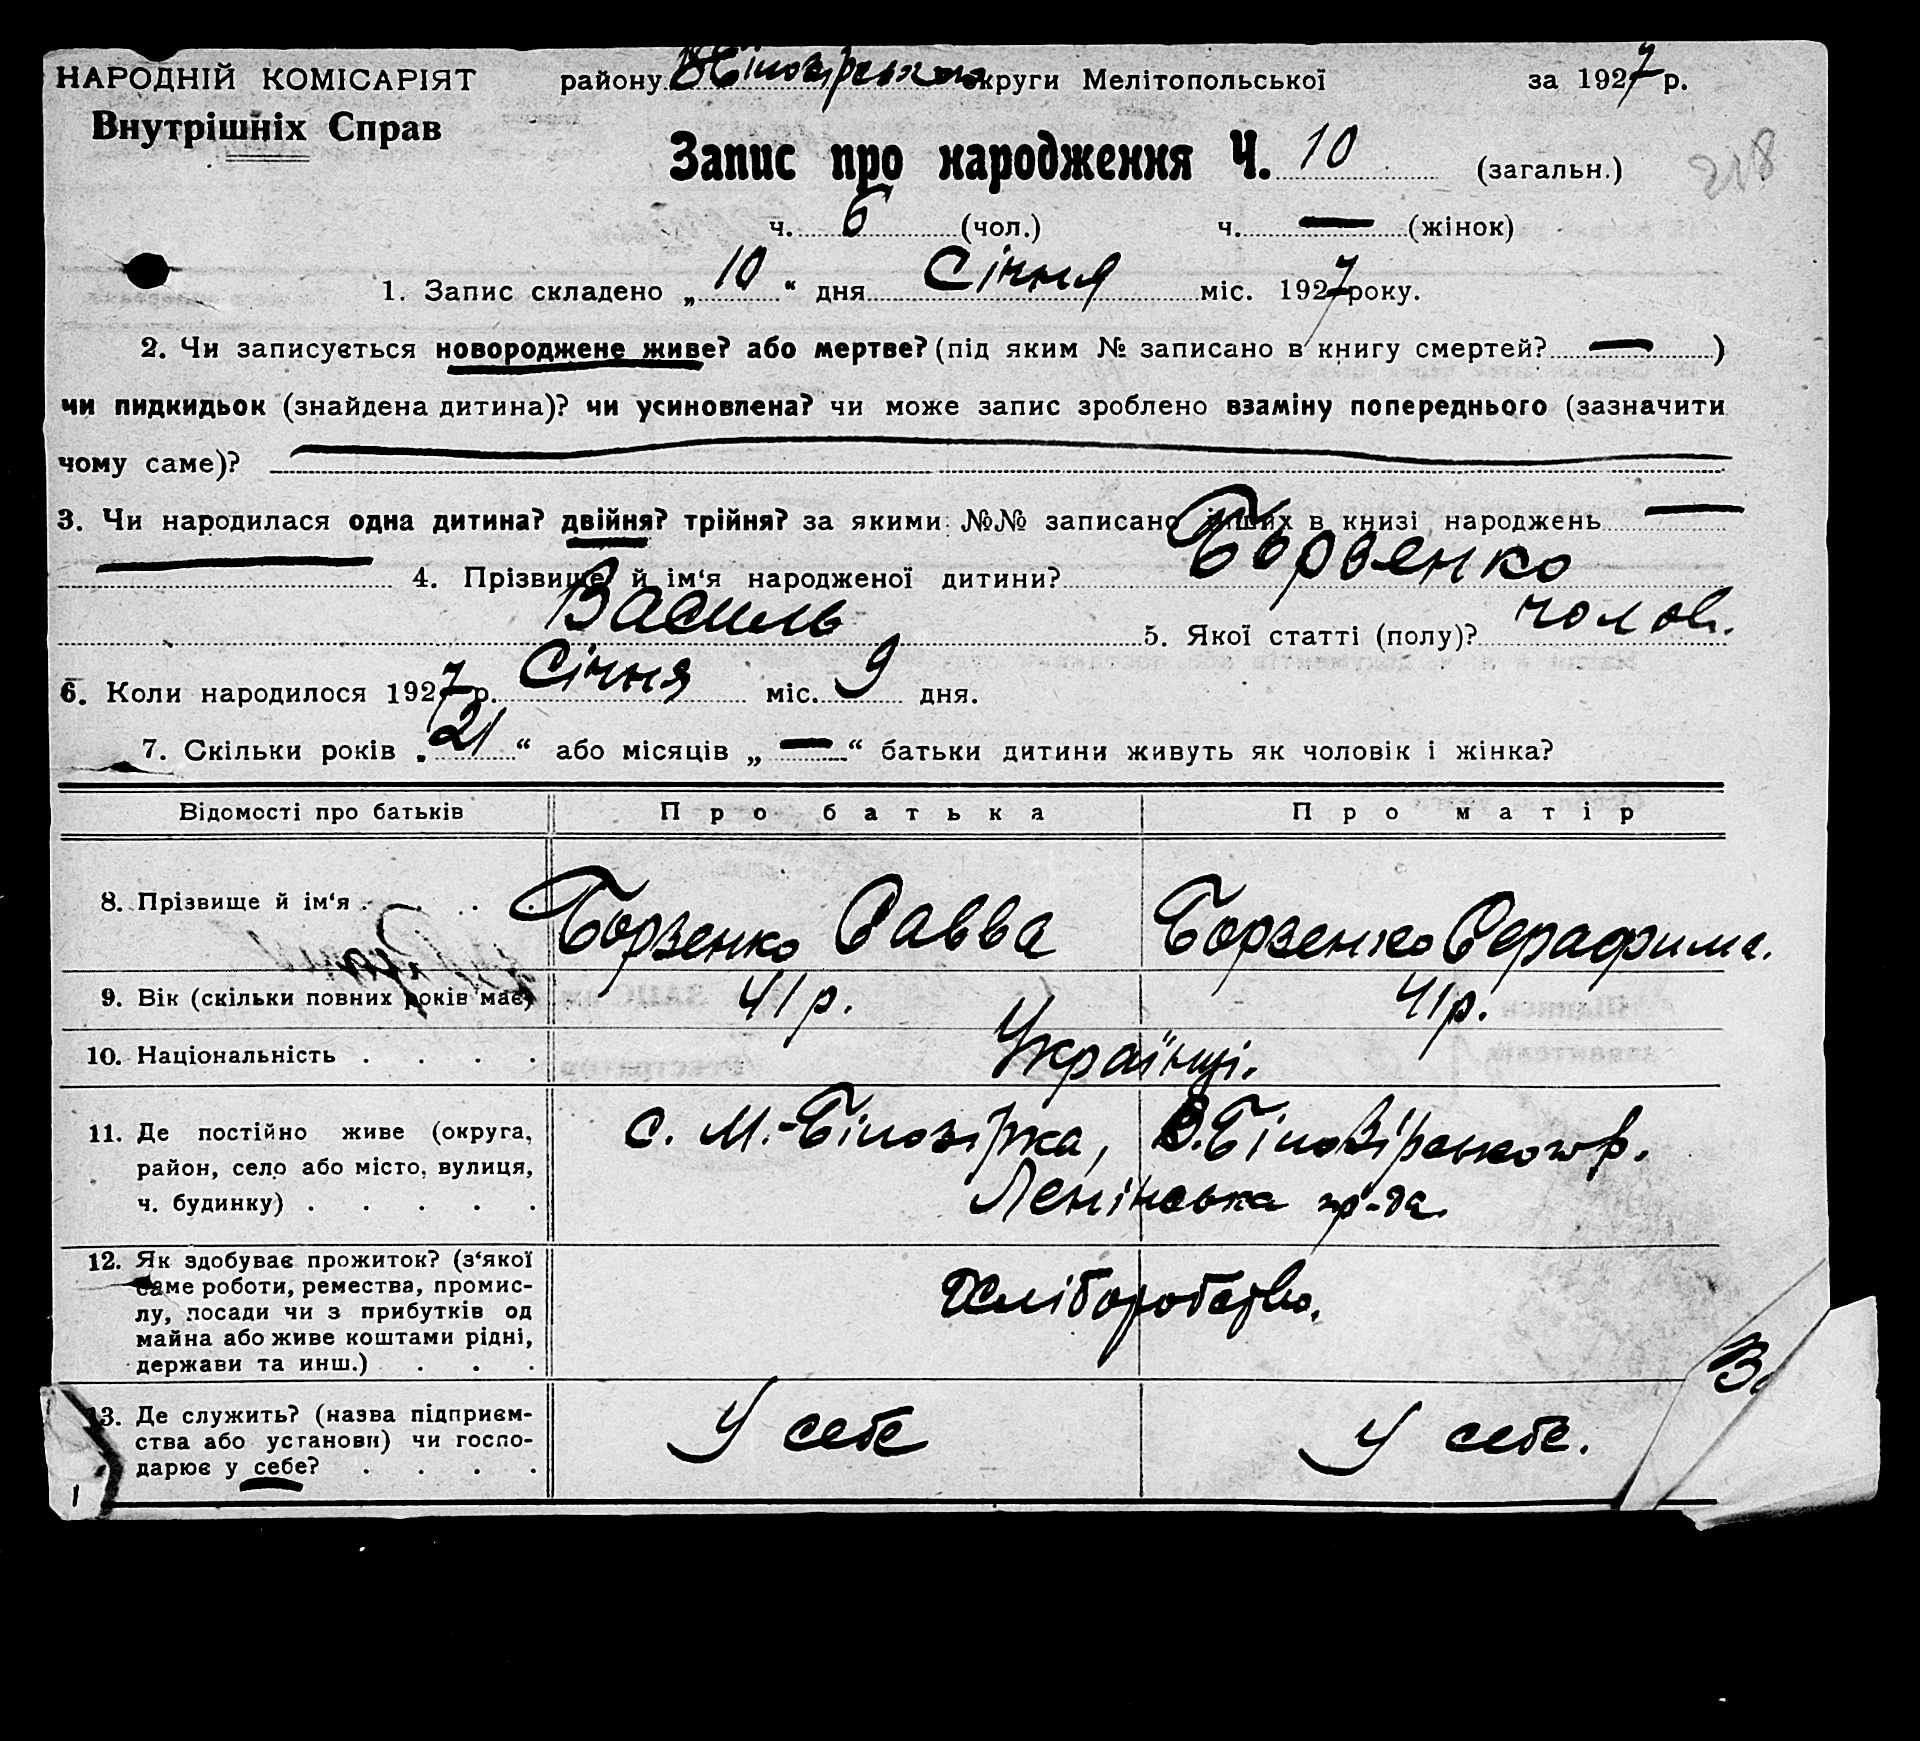 НАРОДНІЙ КОМІСАРІЯТ району В Білозірського округи Мелітопольської за 1927 р.
Внутрішніх Справ
Запис про народження Ч. 10 (загальн.) 218
ч. 6 (чол.) ч. — (жінок)
1. Запис складено „10“ дня Січня міс. 1927 року.
2. Чи записується новороджене живе? або мертве? (під яким № записано в книгу смертей? — )
чи пидкидьок (знайдена дитина)? чи усиновлена? чи може запис зроблено взаміну попереднього (зазначити
чому саме)?
3. Чи народилася одна дитина? двійня? трійня? за якими №№ записано інших в книзі народжень —
— 4. Прізвище й ім‘я народженої дитини? Борзенко
Василь 5. Якої статті (полу)? чолов.
6. Коли народилося 1927 р. Січня міс. 9 дня.
7. Скільки років „21“ або місяців „—“ батьки дитини живуть як чоловік і жінка?
Відомості про батьків Про батька Про матір
8. Прізвище й ім‘я Борзенко Савва Борзенко Серафима.
9. Вік (скільки повних років має) 41 р. 41 р.
10. Національність Українці.
11. Де постійно живе (округа, с. М.-Білозірка, В.Білозірського р.
район, село або місто, вулиця, Ленінська
ч. будинку)
12. Як здобуває прожиток? (з‘якої
саме роботи, ремества, промис- Хліборобство.
лу, посади чи з прибутків од
майна або живе коштами рідні,
держави та инш.)
13. Де служить? (назва підприєм- У себе У себе.
ства або установи) чи госпо-
дарює у себе?